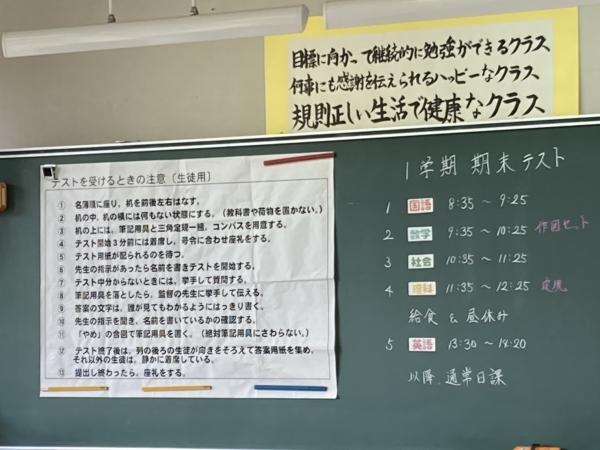 目標に向かって継続的に勉強ができるクラス
何事にも感謝を伝えられるハッピーなクラス
規則正しい生活で健康なクラス
テストを受けるときの注意〔生徒用〕
① 名簿順に座り、机を前後左右はなす。
② 机の中、机の横には何もない状態にする。(教科書や荷物を置かない。)
③ 机の上には、筆記用具と三角定規一組、コンパスを用意する。
④ テスト開始3分前には着席し、号令に合わせ座礼をする。
⑤ テスト用紙が配られるのを待つ。
⑥ 先生の指示があったら名前を書きテストを開始する。
⑦ テスト中分からないときには、挙手して質問する。
⑧ 筆記用具を落としたら、監督の先生に挙手して伝える。
⑨ 答案の文字は、誰が見てもわかるようにはっきり書く。
⑩ 先生の指示を聞き、名前を書いているかの確認する。
⑪ 「やめ」の合図で筆記用具を置く。(絶対筆記用具にさわらない。)
⑫ テスト終了後は、列の後ろの生徒が向きをそろえて答案用紙を集め、
それ以外の生徒は、静かに着席している。
⑬ 提出し終わったら、座礼をする。
1学期 期末テスト
1 国語 8:35 ～ 9:25
2 数学 9:35 ～ 10:25 作図セット
3 社会 10:35 ～ 11:25
4 理科 11:35 ～ 12:25 定規
給食 & 昼休み
5 英語 13:30 ～ 14:20
以降、通常日課